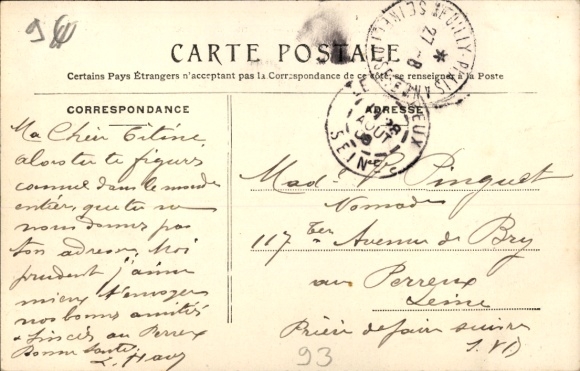 CARTE POSTALE
Certains Pays Étrangers n'acceptent pas la Correspondance de ce côté, se renseigner à la Poste
CORRESPONDANCE
ADRESSE
Ma Chère Titine
alors tu te figures
connue dans le monde
entier, que tu ne
nous donnes pas
ton adresse, Moi
prudent j'aime
mieux t'envoyer
nos bonnes amitiés
au Perreux
Bonne santé
Mad. Pinguet
Nomade
117 ter Avenue de Bry
au Perreux
Seine
Prière de faire suivre
S.V.P
93
27 - 8
28
AOUT
SEINE